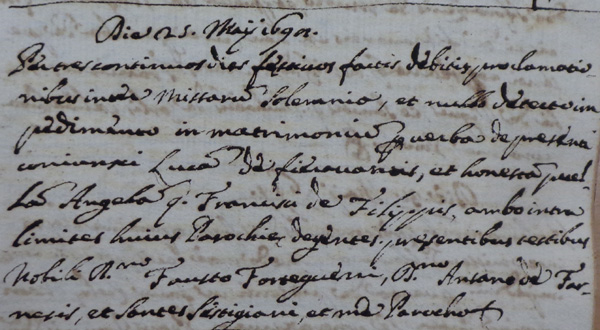 Die 25. Maij 1691.
Per tres continuos dies festivos factis debitis proclamatio-
nibus inter Missarũ Solemnia, et nullo detecto im
pedimento in matrimoniũ p verba de presenti
coniunxi Lucã de, et honestã puel
lã Angelã q. Francisci de Filippis, ambo intra
limites huius Parochie degentes, presentibus testibus
Nobili D.no Fausto Forteguerri, D.no Antonio de Far
nesis, et Santes, et me Parocho